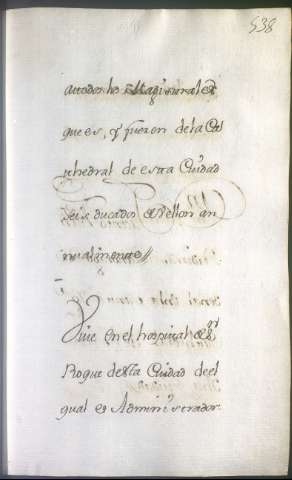 538
a todos los Magistrales
que es, y fueron de la Ca
thedral de esta Ciudad
seis ducados de Vellon an
nualmente
Vive en el hospital de Sn
Roque desta Ciudad de el
qual es Administrador